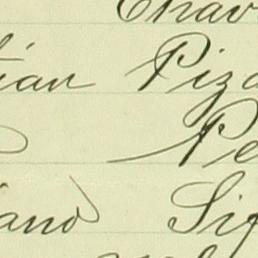 Chav
ián Piza
Pe
iano Sif